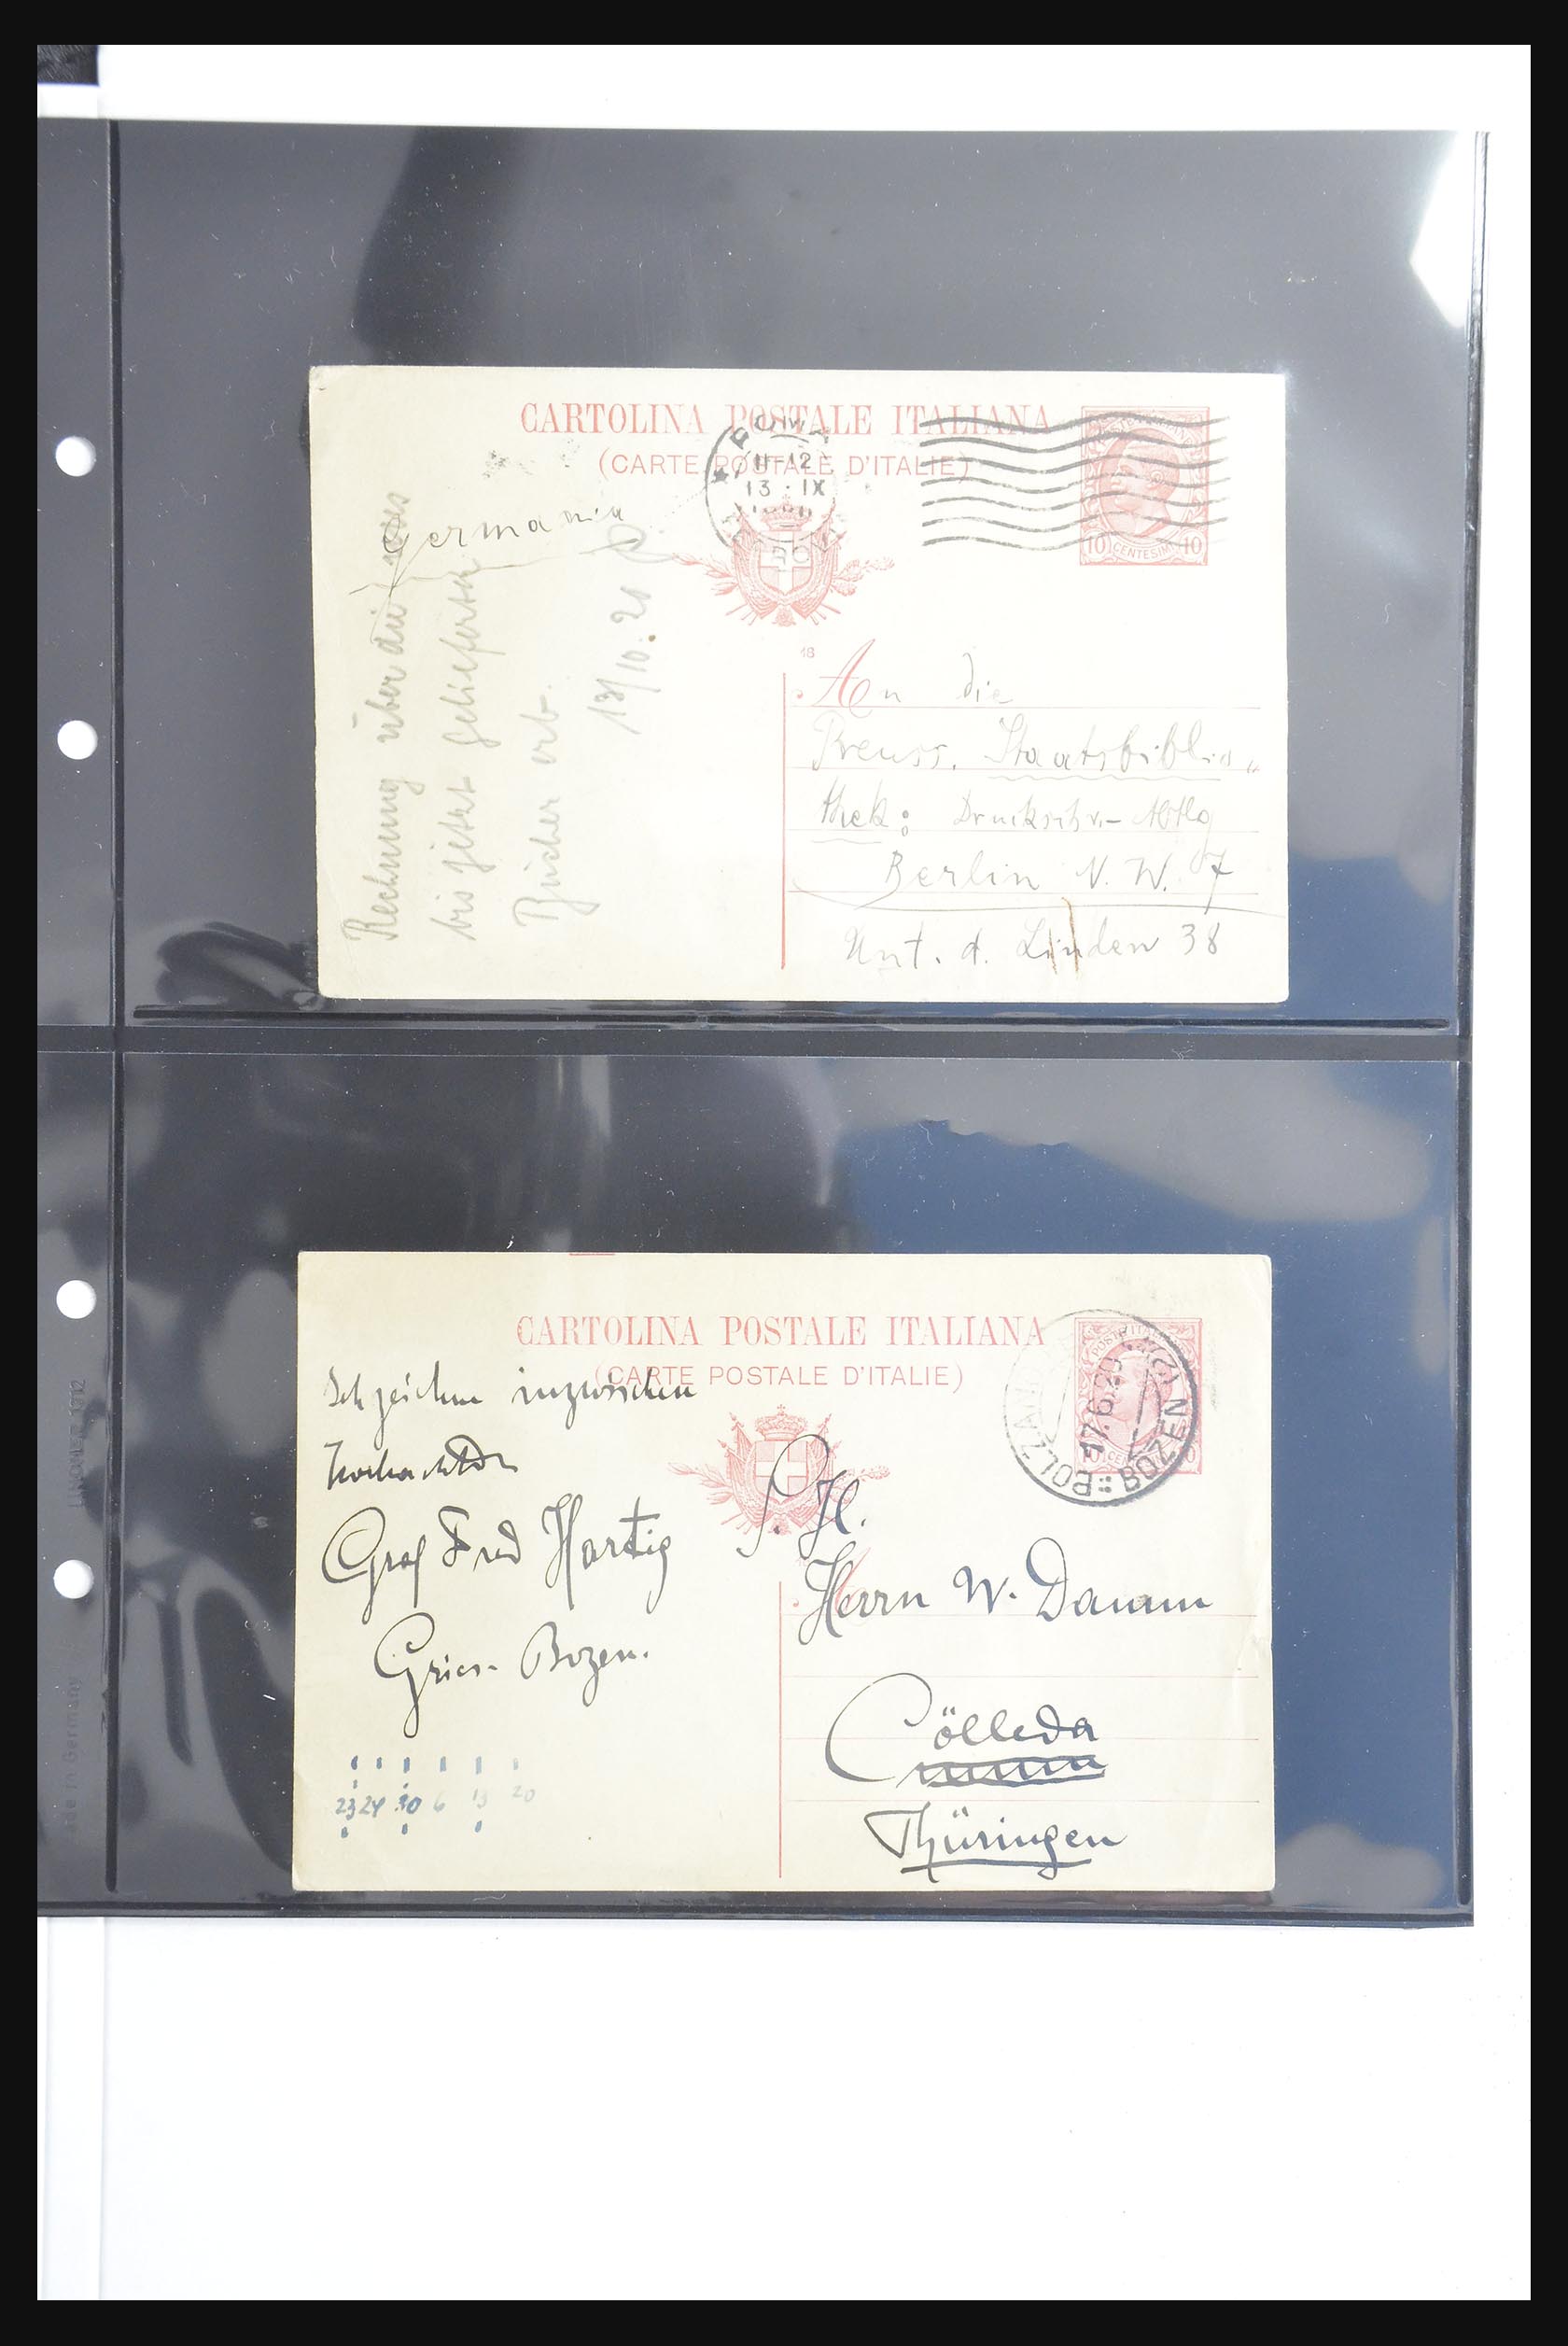 CARTOLINA POSTALE ITALIANA
(CARTE POSTALE D'ITALIE)
ROMA
11-12
13·IX
10 CENTESIMI 10
Germania
Rechnung über die
bis jetzt gelieferten
Bücher erb.
13/10.20
18
An die
Preuss. Staatsbiblio„
thek: Druckschr.- Abtlg
Berlin N. W. 7
Unt. d. Linden 38
CARTOLINA POSTALE ITALIANA
(CARTE POSTALE D'ITALIE)
17.6.20
BOZEN
Ich zeichne inzwischen
Graf Fred Hartig
Gries- Bozen.
23 24 30 6 13 20
S. H.
Herrn W. Damm
Cölleda
Thüringen